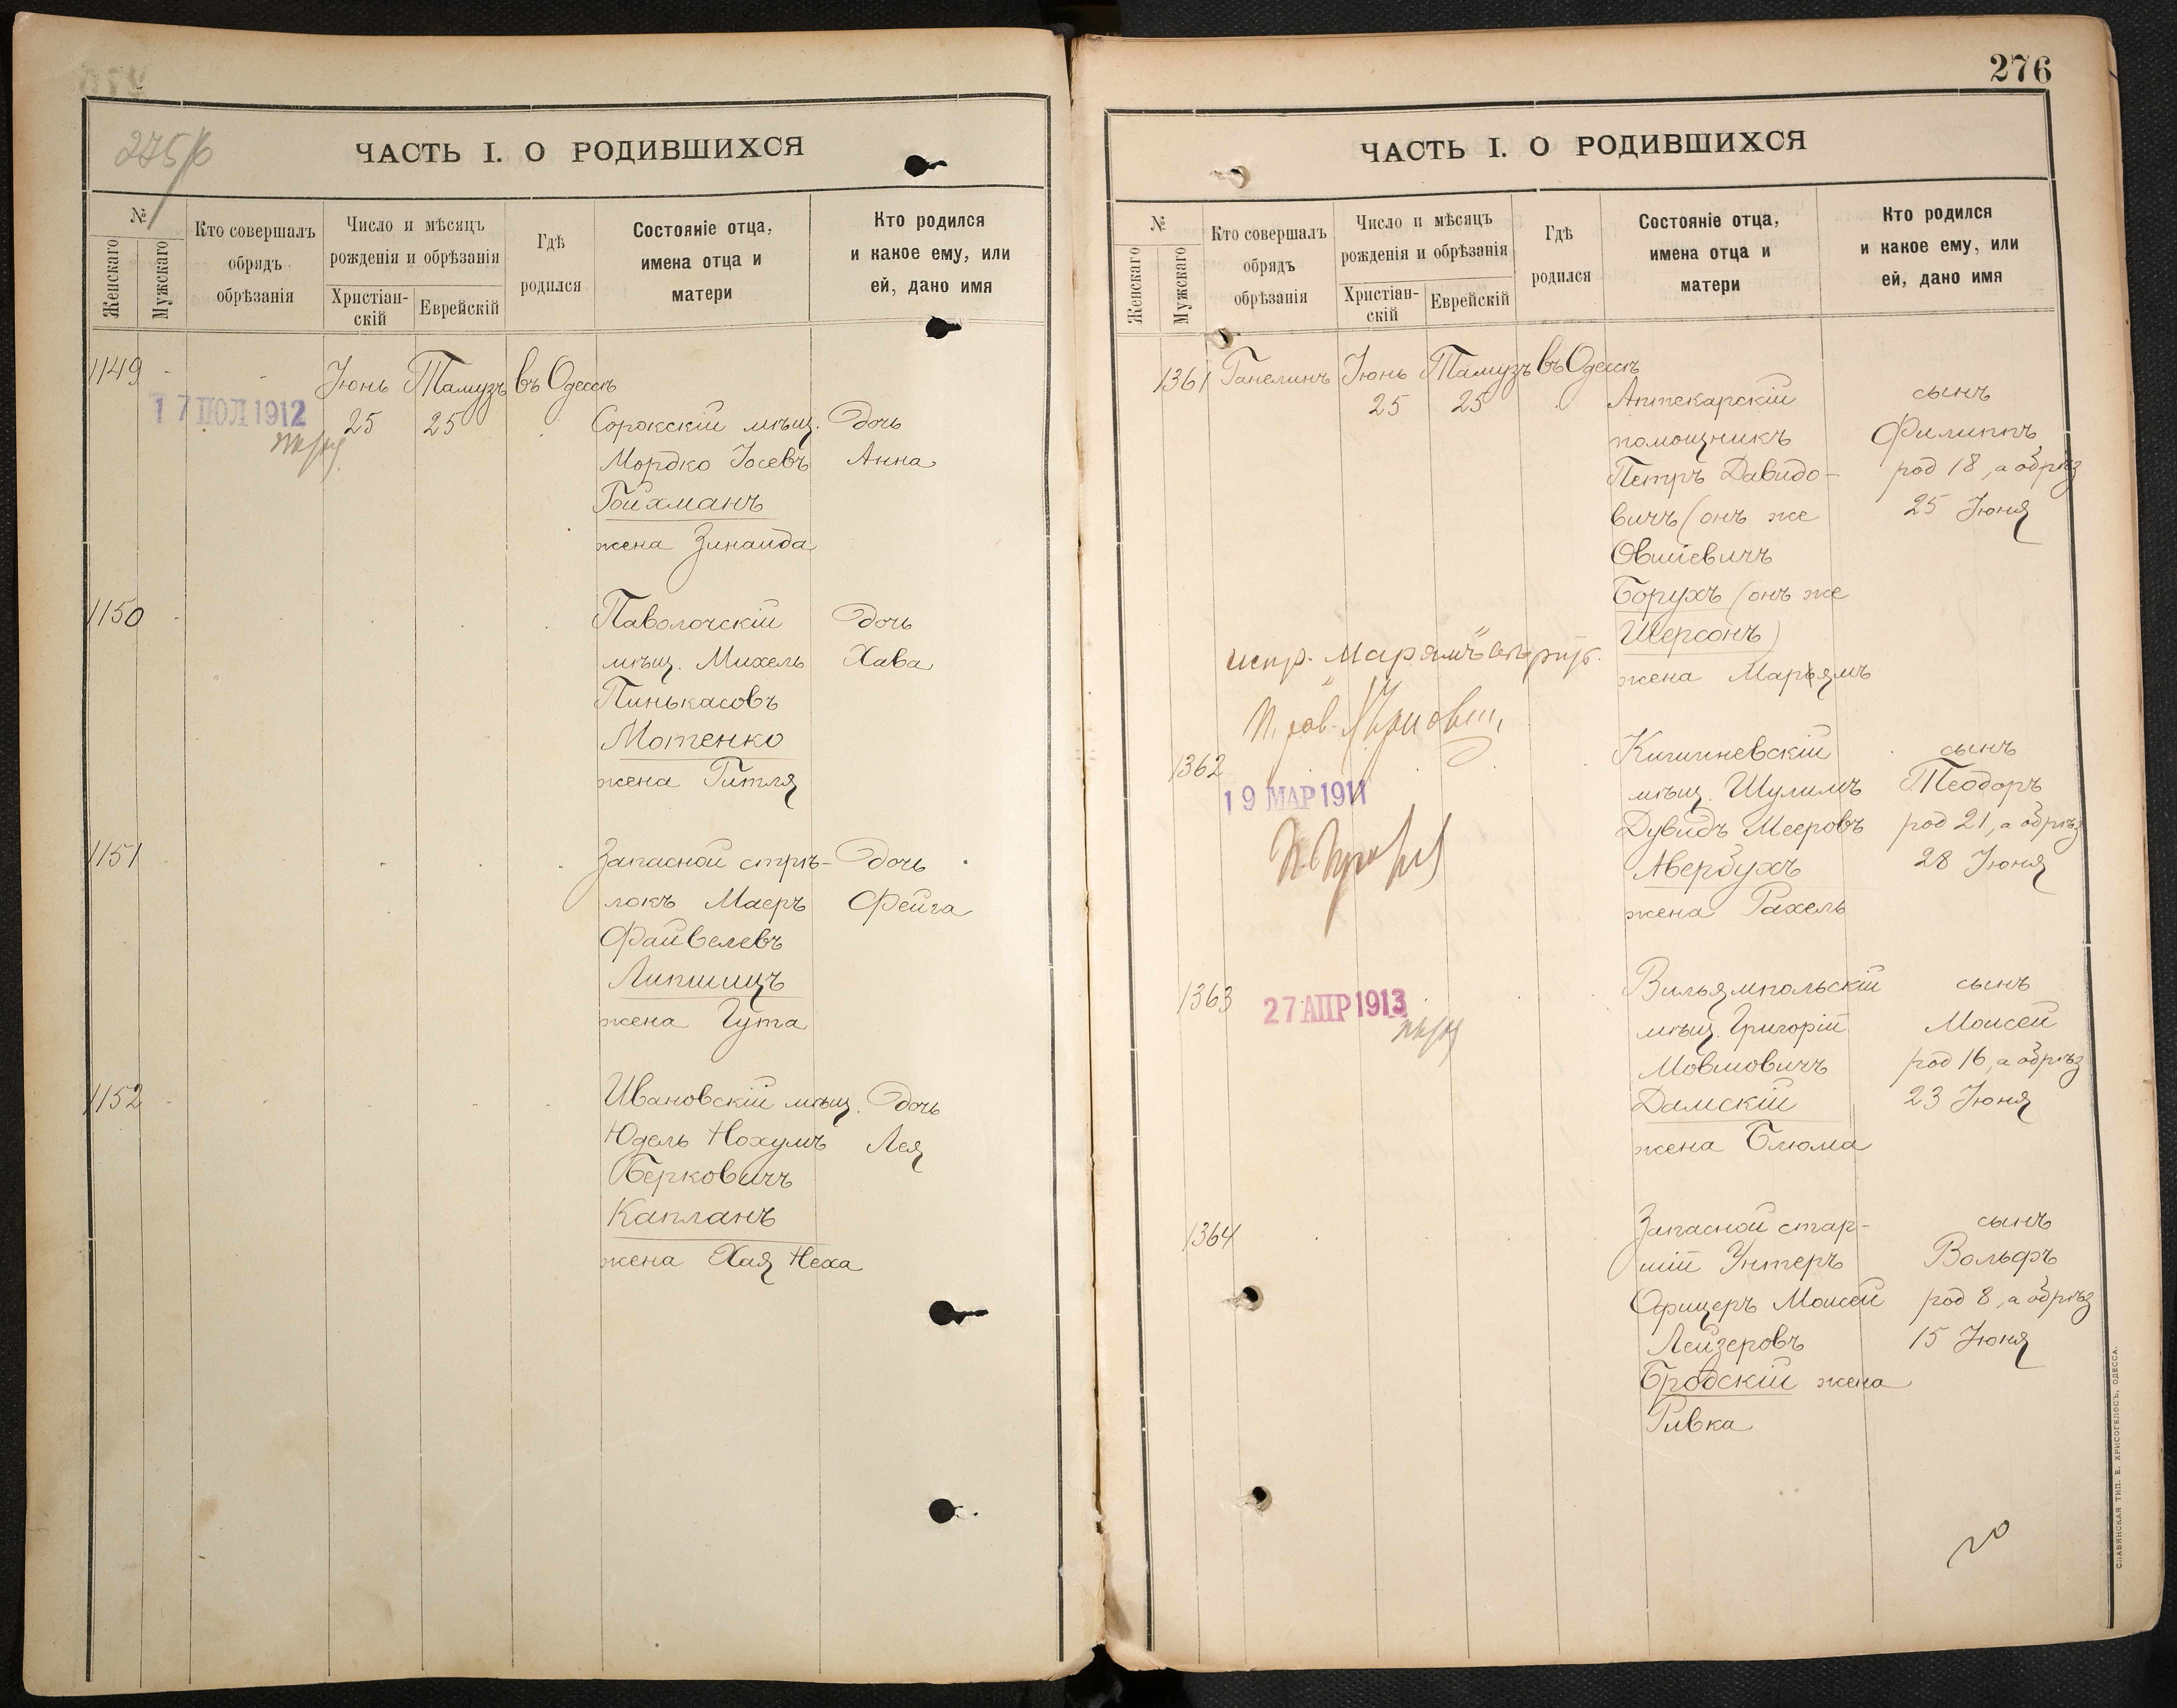 ЧАСТЬ I. О РОДИВШИХСЯ
№
Женскаго
Мужскаго
Кто совершалъ
обрядъ
обрѣзанія
Число и мѣсяцъ
рожденія и обрѣзанія
Христіан-
скій
Еврейскій
Гдѣ
родился
Состояніе отца,
имена отца и
матери
Кто родился
и какое ему, или
ей, дано имя
1149
Іюнь Тамузъ въ Одессѣ
17 ІЮЛ 1912
25 25
Сорокскій мѣщ. Дочь
Мордко Іосевъ Анна
Гойхманъ
жена Зинаида
1150 Паволочскій Дочь
мѣщ. Михель Хава
Пинькасовъ
Мотенко
жена Гитля
1151 Запасной стрѣ- Дочь
локъ Маеръ Фейга
Файвелевъ
Липшицъ
жена Гута
1152 Ивановскій мѣщ. Дочь
Юдель Нохумъ Лея
Берковичъ
Капланъ
жена Хая Неха
276
ЧАСТЬ I. О РОДИВШИХСЯ
№
Женскаго
Мужскаго
Кто совершалъ
обрядъ
обрѣзанія
Число и мѣсяцъ
рожденія и обрѣзанія
Христіан-
скій
Еврейскій
Гдѣ
родился
Состояніе отца,
имена отца и
матери
Кто родился
и какое ему, или
ей, дано имя
1361 Ганелинъ Іюнь Тамузъ въ Одессѣ
25 25
Аптекарскій сынъ
помощникъ Филиппъ
Петръ Давидо- род 18, а обрѣз
вичъ (онъ же 25 Іюня
Овшіевичъ
Борухъ (онъ же
Шерсонъ)
жена Марьямъ
испр. "Марямъ"
1362 Кишиневскій сынъ
19 МАР 1911
мѣщ. Шулимъ Теодоръ
Дувидъ Мееровъ род 21, а обрѣз
Авербухъ 28 Іюня
жена Рахель
1363 Вильямпольскій сынъ
27 АПР 1913
мѣщ. Григорій Моисей
Мовшовичъ род 16, а обрѣз
Дамскій 23 Іюня
жена Блюма
1364 Запасной стар- сынъ
шій Унтеръ Вольфъ
Офицеръ Моисей род 8, а обрѣз
Лейзеровъ 15 Іюня
Бродскій жена
Ривка
СЛАВЯНСКАЯ ТИП. Е. ХРИСОГЕЛОСЪ, ОДЕССА.